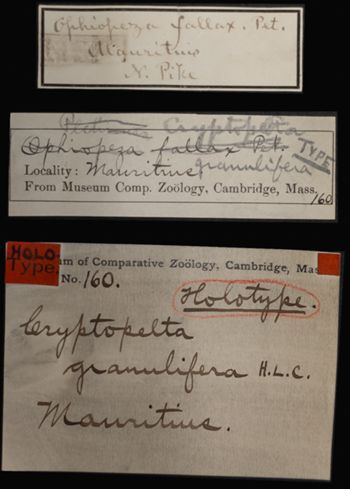 Ophiopeza fallax. Pet.
Mauritius
N. Pike
Cryptopelta
Ophiopeza fallax Pet. TYPE
Locality: Mauritius granulifera
From Museum Comp. Zoölogy, Cambridge, Mass.
160
HOLO
Type um of Comparative Zoölogy, Cambridge, Mas
No. 160.
Holotype.
Cryptopelta
granulifera H.L.C.
Mauritius.